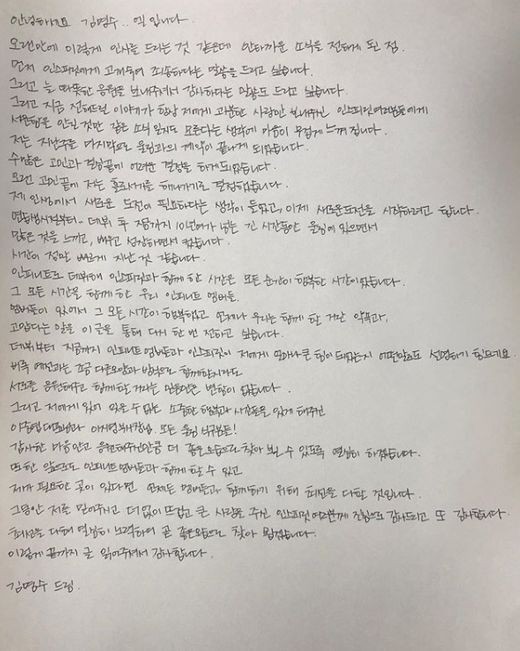 안녕하세요 김명수.. 엘 입니다.
오랜만에 이렇게 인사를 드리는 것 같은데 안타까운 소식을 전하게 된 점,
먼저 인스피릿에게 고개숙여 죄송하다는 말씀을 드리고 싶습니다.
그리고 늘 따뜻한 응원을 보내주셔서 감사하다는 말씀도 드리고 싶습니다.
그리고 지금 전해드릴 이야기가 항상 저에게 과분한 사랑만 보내주신 인스피릿여러분들에게
서운함을 안길 것만 같은 소식 일지도 모른다는 생각에 마음이 무겁게 느껴집니다.
저는 지난주를 마지막으로 울림과의 계약이 끝나게 되었습니다.
수많은 고민과 결심끝에 어려운 결정을 하게되었습니다.
오랜 고민끝에 저는 홀로서기를 해나가기로 결정했습니다.
제 인생에서 새로운 도전이 필요하다는 생각이 들었고, 이제 새로운도전을 시작하려고 합니다.
연습생시절부터.. 데뷔 후 지금까지 10년여가 넘는 긴 시간동안 울림에 있으면서
많은 것을 느끼고, 배우고 성장하면서 컸습니다.
시간이 정말 빠르게 지난 것 같습니다.
인피니트로 데뷔해 인스피릿과 함께 한 시간은 모든 순간이 행복한 시간이었습니다.
그 모든 시간을 함께 한 우리 인피니트 멤버들.
멤버들이 있어서 그 모든 시간이 행복했고 언제나 우리는 함께 할 거란 약속과,
고맙다는 말을 이 글을 통해 다시 한 번 전하고 싶습니다.
데뷔부터 지금까지 인피니트 멤버들과 인스피릿이 저에게 얼마나 큰 힘이 되었는지 어떤말로도 설명하기 힘드네요.
비록 예전과는 조금 다른모양과 방향으로 함께할지라도
서로를 응원해주고 함께 할 거라는 믿음만은 변함이 없습니다.
그리고 저에게 잊지 못할 수 많은 소중한 행복과 시간들을 있게 해주신
이중엽 대표님과 이기영부사장님, 모든 울림 식구분들!
감사한 마음안고 응원해주신만큼 더 좋은모습으로 찾아 뵐 수 있도록 열심히 하겠습니다.
또한 앞으로도 인피니트 멤버들과 함께 할 수 있고
제가 필요한 곳이 있다면 언제든 멤버들과 함께하기 위해 최선을 다할 것입니다.
그동안 저를 믿어주시고 더 없이 뜨겁고 큰 사랑을 주신 인스피릿 여러분께 진심으로 감사드리고 또 감사합니다.
최선을 다해 열심히 노력하여 곧 좋은모습으로 찾아 뵙겠습니다.
이렇게 끝까지 글 읽어주셔서 감사합니다.
김명수 드림.